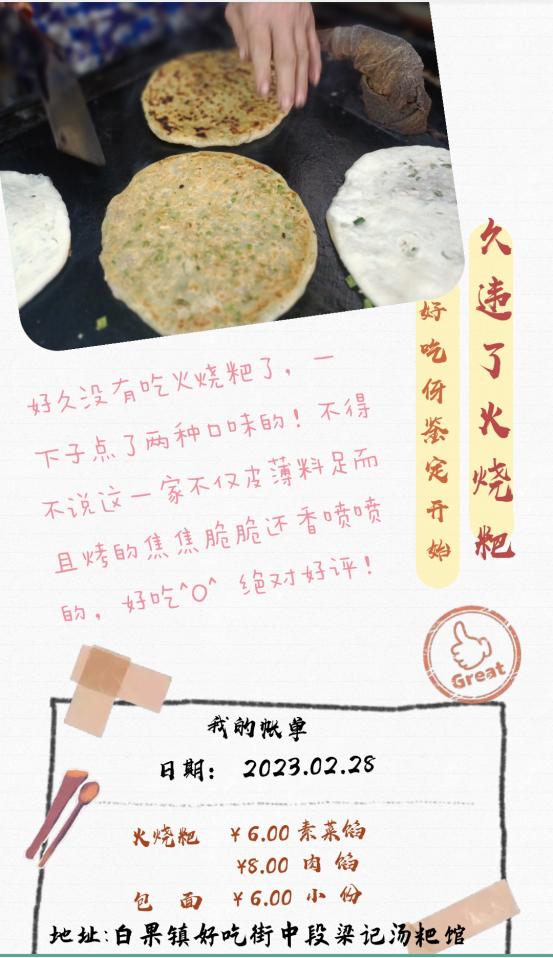 久违了火烧粑
好吃伢鉴定开始
好久没有吃火烧粑了，一
下子点了两种口味的！不得
不说这一家不仅皮薄料足而
且烤的焦焦脆脆还香喷喷
的，好吃^O^ 绝对好评！
Great
我的帐单
日期： 2023.02.28
火烧粑 ￥6.00 素菜馅
￥8.00 肉 馅
包 面 ￥6.00 小 份
地址:白果镇好吃街中段梁记汤粑馆